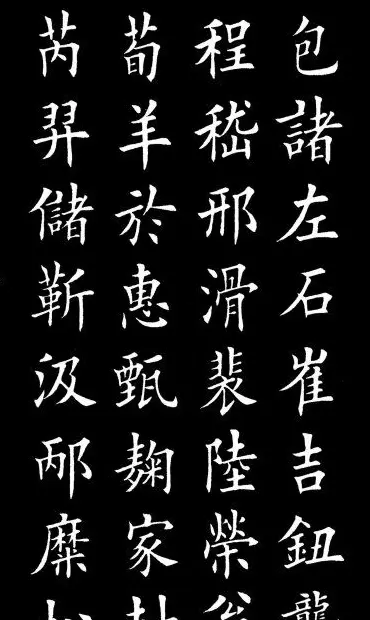 包諸左石崔吉鈕
程嵇邢滑裴陸榮
荀羊於惠甄麴家
芮羿儲靳汲邴糜